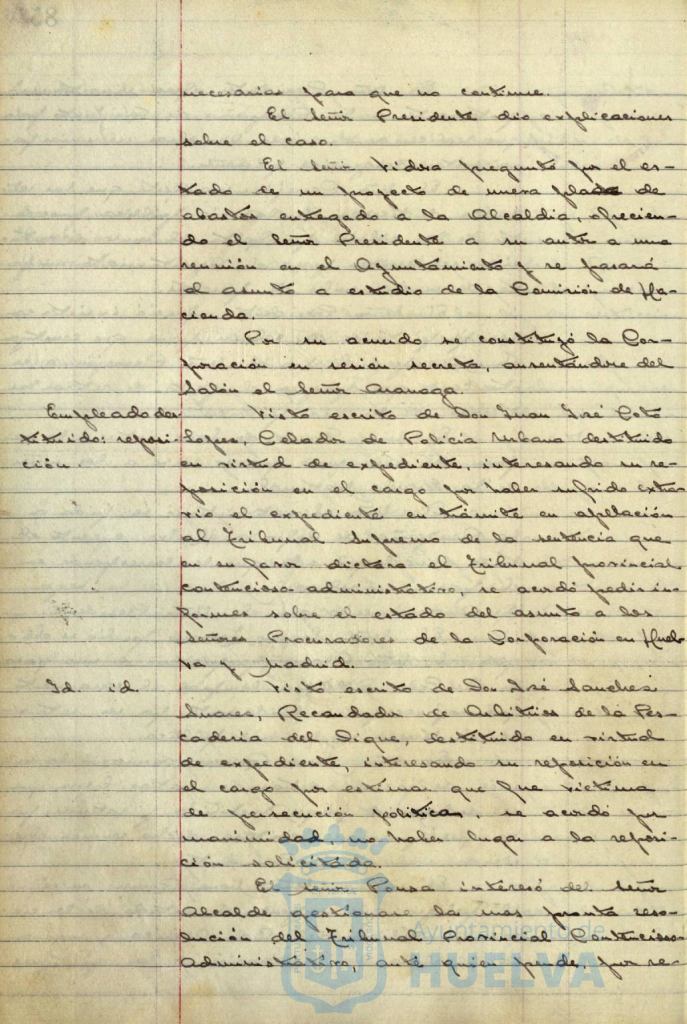 necesarias para que no continue.
El Señor Presidente dio explicaciones
sobre el caso.
El Señor Vidosa preguntó por el es-
tado de un proyecto de nueva plaza de
abastos entregado a la Alcaldia, ofrecien-
do el Señor Presidente a su autor a una
reunión en el Ayuntamiento y se pasará
el asunto a estudio de la Comisión de Ha-
cienda.
Por su acuerdo se constituyó la Cor-
poración en sesión secreta, ausentándose del
Salón el Señor
Empleado des-
tituido: reposi-
ción.
Visto escrito de Don Juan José Coto
Lopez, Celador de Policia Urbana destituido
en virtud de expediente, interesando su re-
posición en el cargo por haber sufrido extra-
vio el expediente en trámite en apelación
al Tribunal Supremo de la sentencia que
en su favor dictara el Tribunal provincial
contencioso-administrativo, se acordó pedir in-
formes sobre el estado del asunto a los
Señores Procuradores de la Corporación en Huel-
va y Madrid.
Id. id.
Visto escrito de Don José Sanchez
Suarez, Recaudador de Arbitrios de la Pes-
caderia del Dique, destituido en virtud
de expediente, interesando su reposición en
el cargo por estimar que fue victima
de persecución politica, se acordó por
unanimidad, no haber lugar a la reposi-
ción solicitada.
El Señor Ponsa interesó del Señor
Alcalde gestionare la mas pronta reso-
lución del Tribunal Provincial Contencioso-
Administrativo, ante quien pende, por re-
Ayuntamiento de
HUELVA